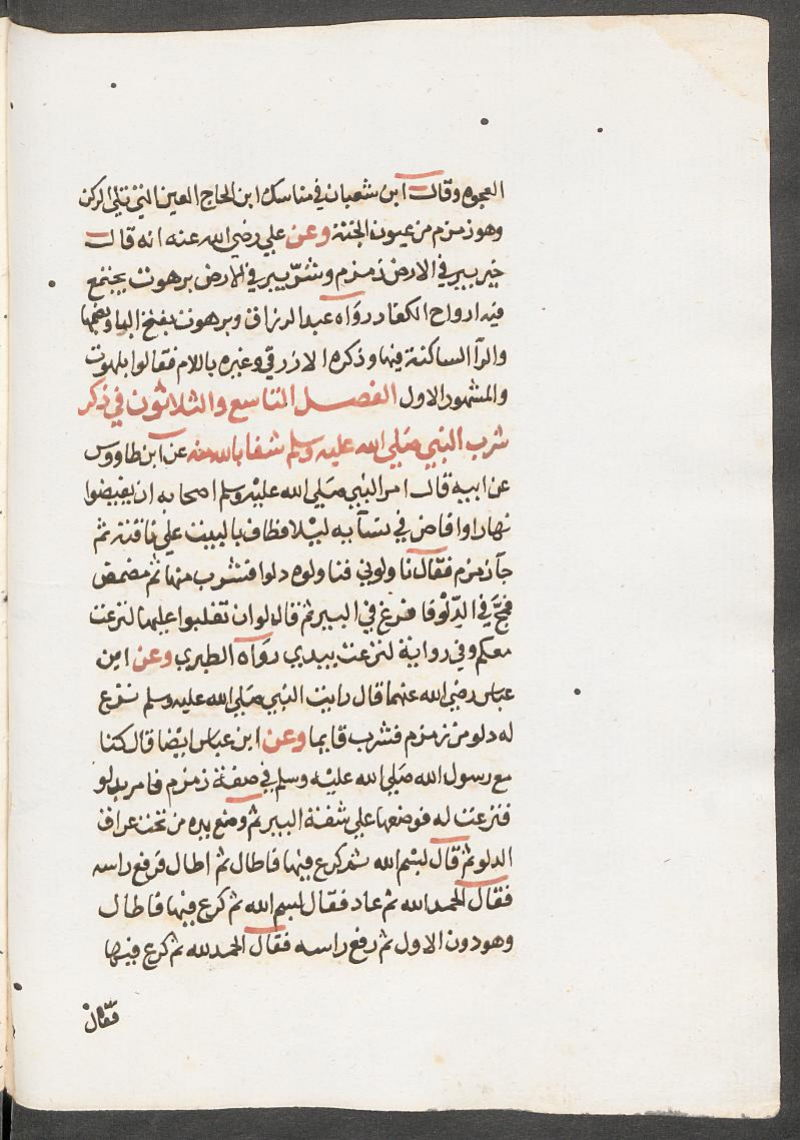 العجوه وقال ابن شعبان في مناسك ابن الحاج العين التي تلي الركن
وهو زمزم من عيون الجنة وعن علي رضي الله عنه انه قال
خير بير في الارض زمزم وشر بير في الارض برهوت يجتمع
فيه ارواح الكفار رواه عبد الرزاق وبرهوت بفتح الباء وضمها
والرآ الساكنة فيها وذكره الازرقي وغيره باللام فقالوا بلهوت
والمشهور الاول الفصل التاسع والثلاثون في ذكر
شرب النبي صلي الله عليه وسلم شفا بالله منه عن ابن طاووس
عن ابيه قال امر النبي صلي الله عليه وسلم اصحابه ان يفيضوا
نهارا وافاض في نسآيه ليلا فطاف بالبيت علي ناقته ثم
جآ زمزم فقال ناولوني فناولوه دلوا فشرب منها ثم مضمض
فمج في الدلو فافرغ في البير ثم قال لو ان تغلبوا عليها لنزعت
معكم وفي رواية لنزعت بيدي رواه الطبري وعن ابن
عباس رضي الله عنهما قال رايت النبي صلي الله عليه وسلم نزع
له دلو من زمزم فشرب قايما وعن ابن عباس ايضا قال كنا
مع رسول الله صلي الله عليه وسلم في صفة زمزم فامر بدلو
فنزعت له فوضعها علي شفة البير ثم وضع يده من تحت عراق
الدلو ثم قال بسم الله ثم كرع فيها فاطال ثم اطال فرفع راسه
فقال الحمد لله ثم عاد فقال بسم الله ثم كرع فيها فاطال
وهو دون الاول ثم رفع راسه فقال الحمد لله ثم كرع فيها
فقال